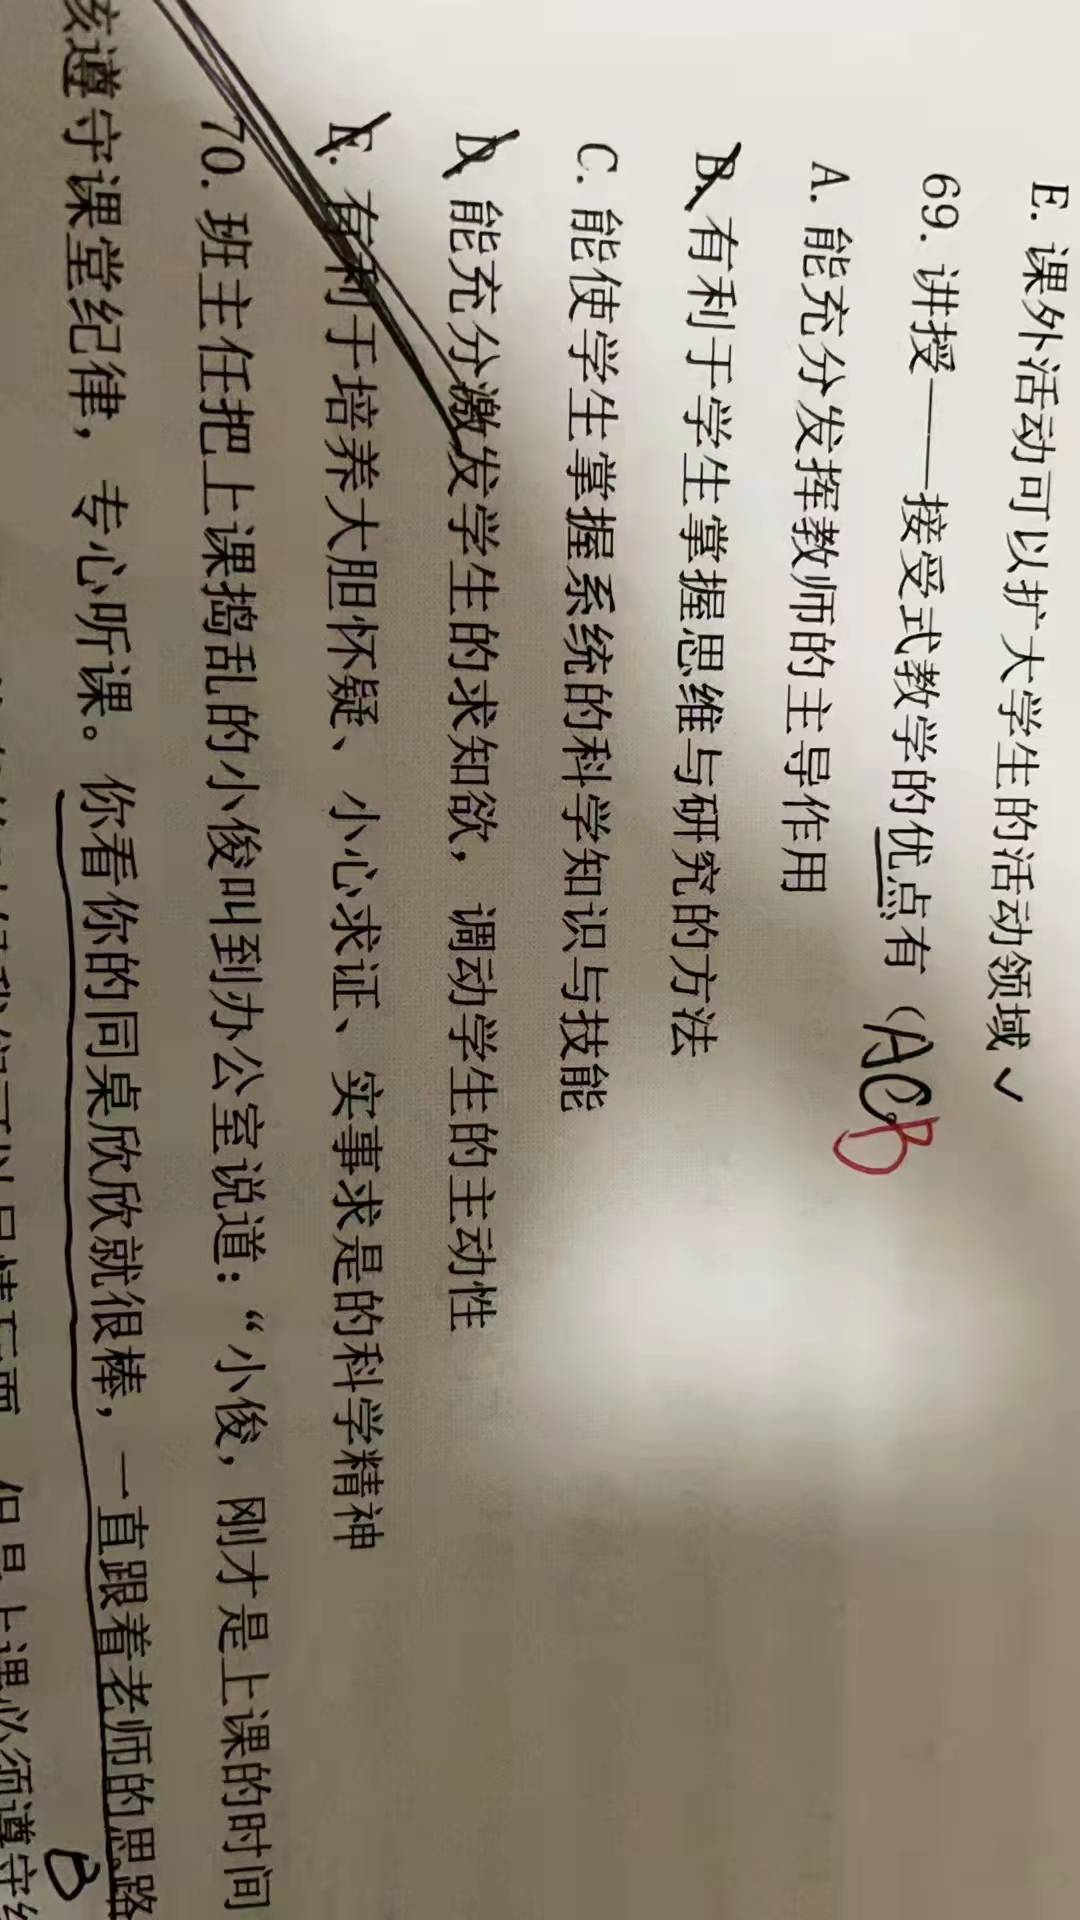 E. 课外活动可以扩大学生的活动领域 ✓
69. 讲授——接受式教学的优点有（ACB
A. 能充分发挥教师的主导作用
B. 有利于学生掌握思维与研究的方法
C. 能使学生掌握系统的科学知识与技能
D. 能充分激发学生的求知欲，调动学生的主动性
E. 有利于培养大胆怀疑、小心求证、实事求是的科学精神
70. 班主任把上课捣乱的小俊叫到办公室说道：“小俊，刚才是上课的时间
该遵守课堂纪律，专心听课。你看你的同桌欣欣就很棒，一直跟着老师的思路
但是上课必须遵守
B